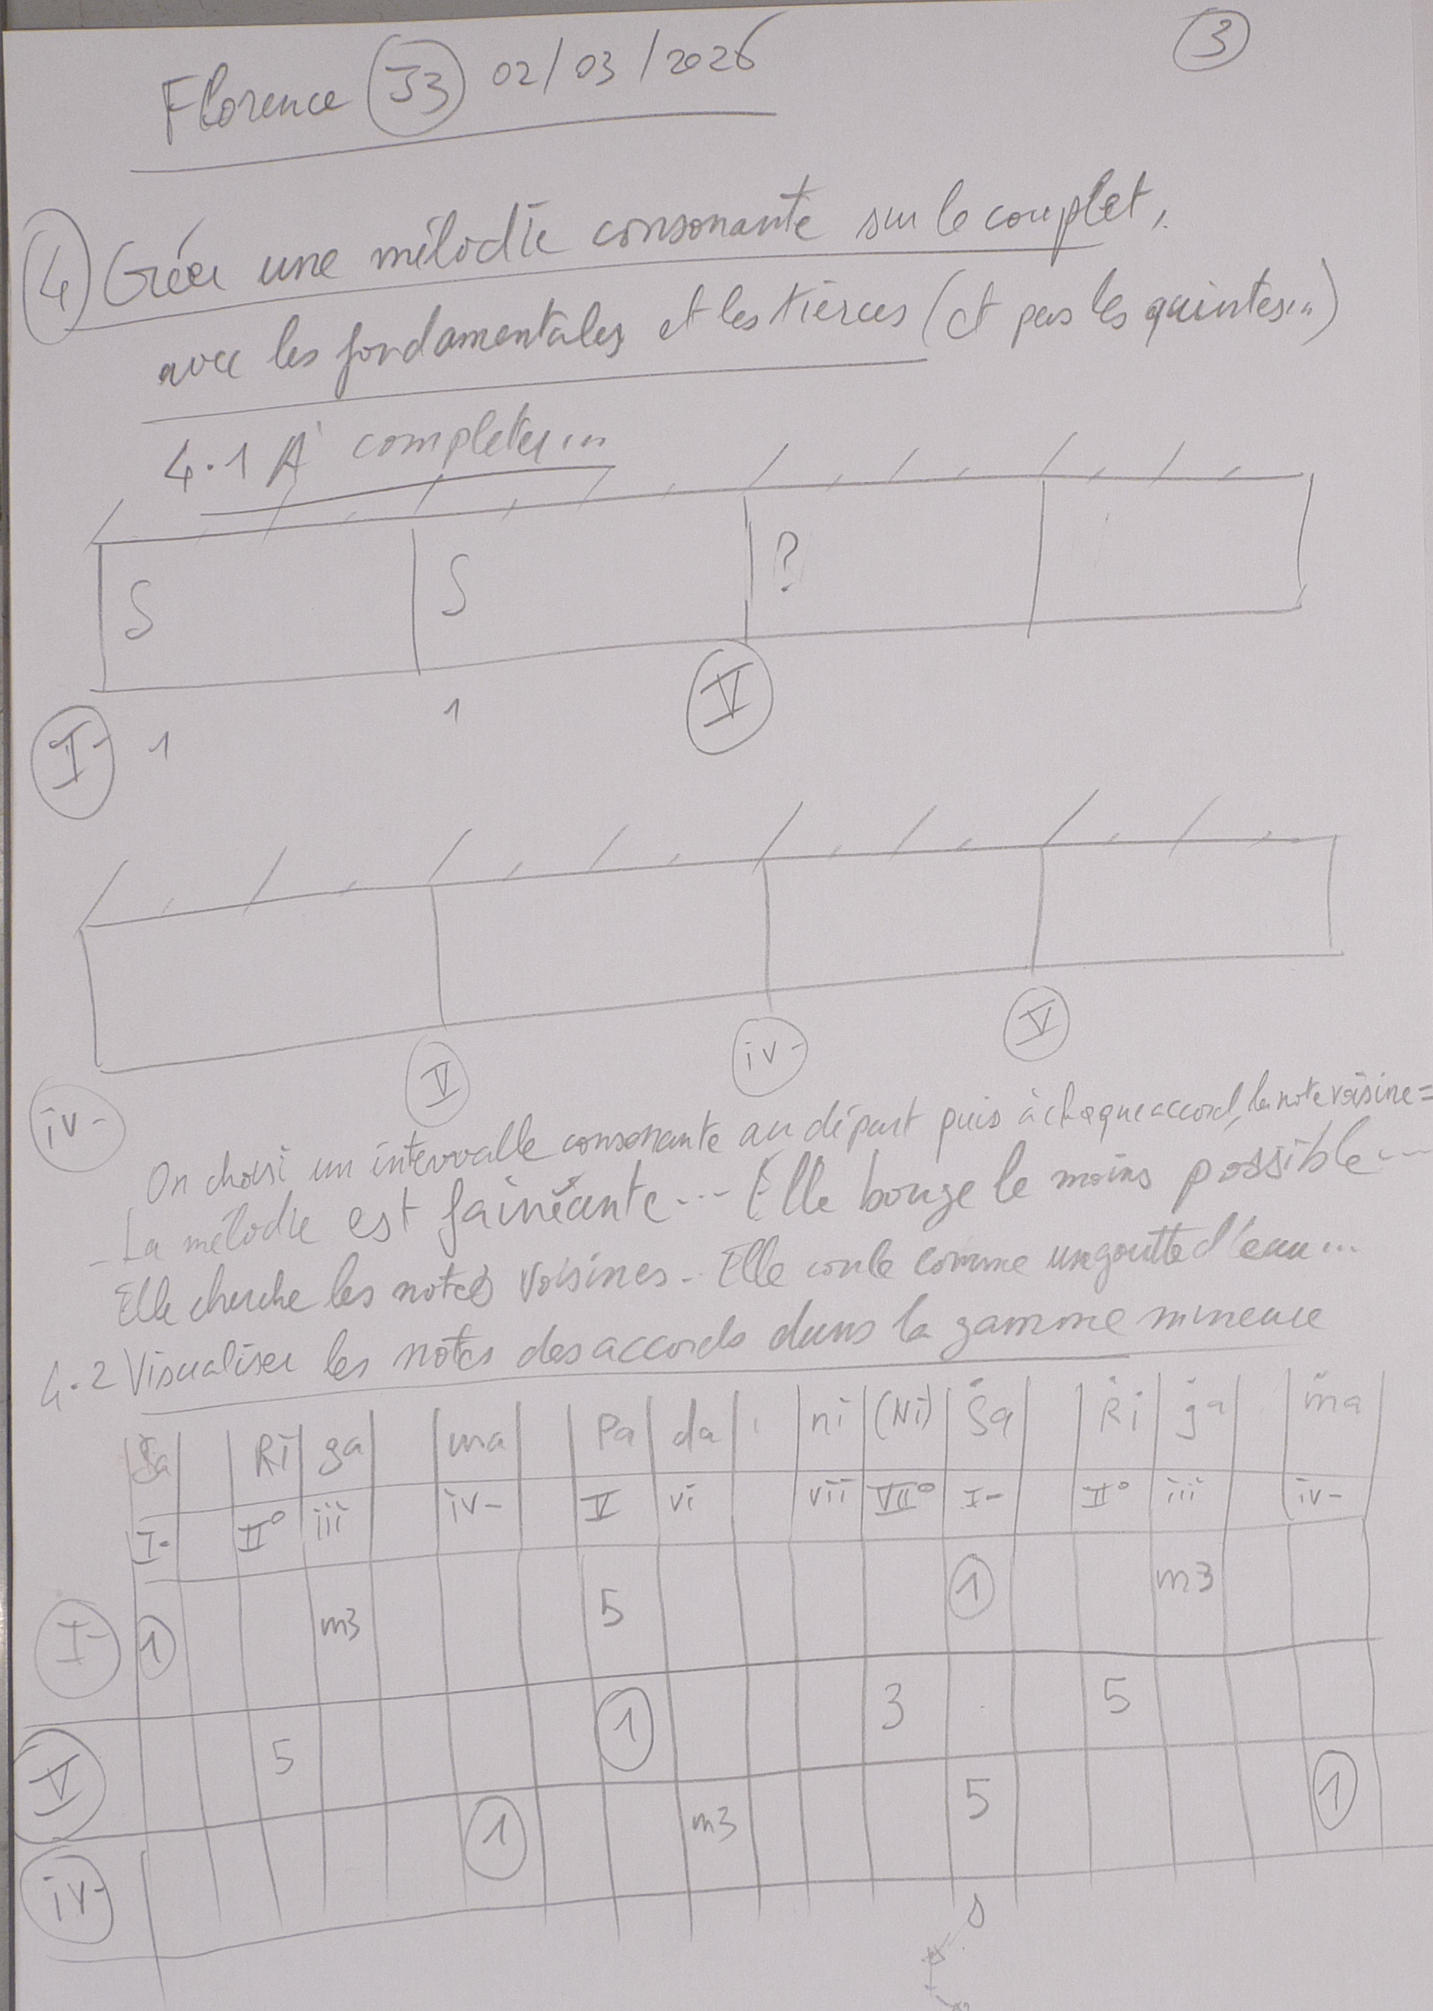 Florence J3 02/03/2026
3
4 Créer une mélodie consonante sur le couplet,
avec les fondamentales et les tierces (et pas les quintes...)
4.1 À completer...
S S ?
I- 1 1 V
iv- V iv- V
On choisi un intervalle consonante au départ puis à chaque accord, la note voisine =
- La mélodie est fainéante... Elle bouge le moins possible...
Elle cherche les notes voisines. Elle coule comme une goutte d'eau...
4.2 Visualiser les notes des accords dans la gamme mineure
Sa Ri ga ma Pa da ni (Ni) Sa Ri ga ma
I- II° iii iv- V vi vii VII° I- II° iii iv-
I- 1 m3 5 1 m3
V 5 1 3 5
iv- 1 m3 5 1
s